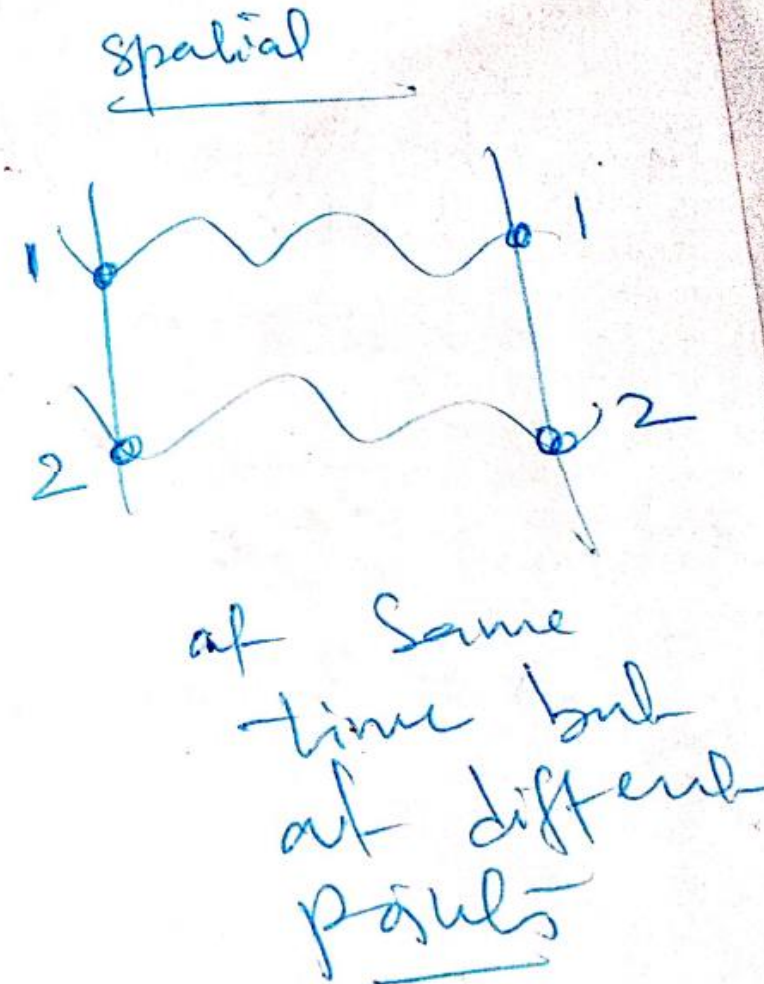 spatial
1 1
2 2
at same
time but
at different
points